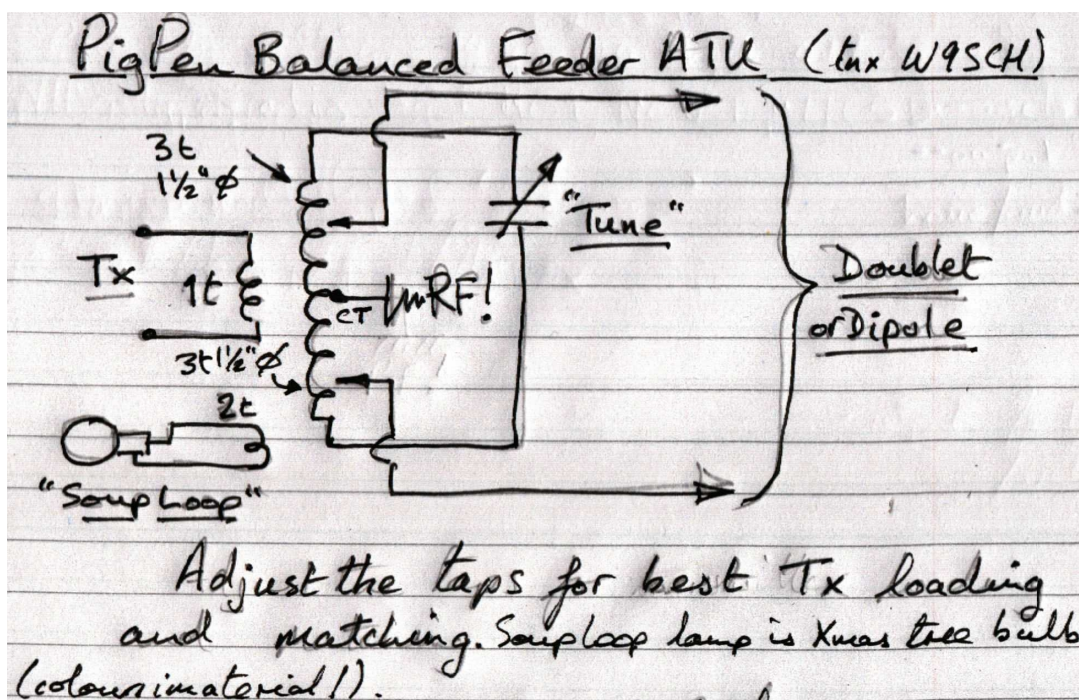 PigPen Balanced Feeder ATU (tnx W9SCH)
3t
1½" ϕ
"Tune"
Tx
1t
CT
RF!
Doublet
or Dipole
3t 1½" ϕ
2t
"Soup Loop"
Adjust the taps for best Tx loading
and matching. Soup loop lamp is Xmas tree bulb
(colour imaterial!).